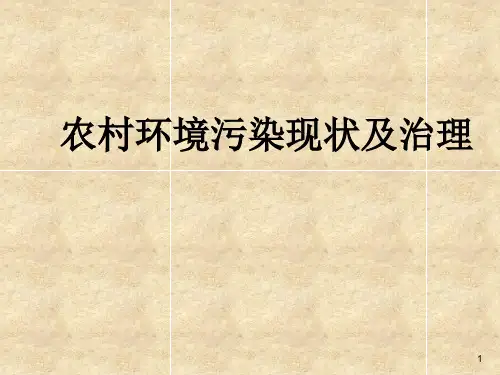 农村环境污染现状及治理
1